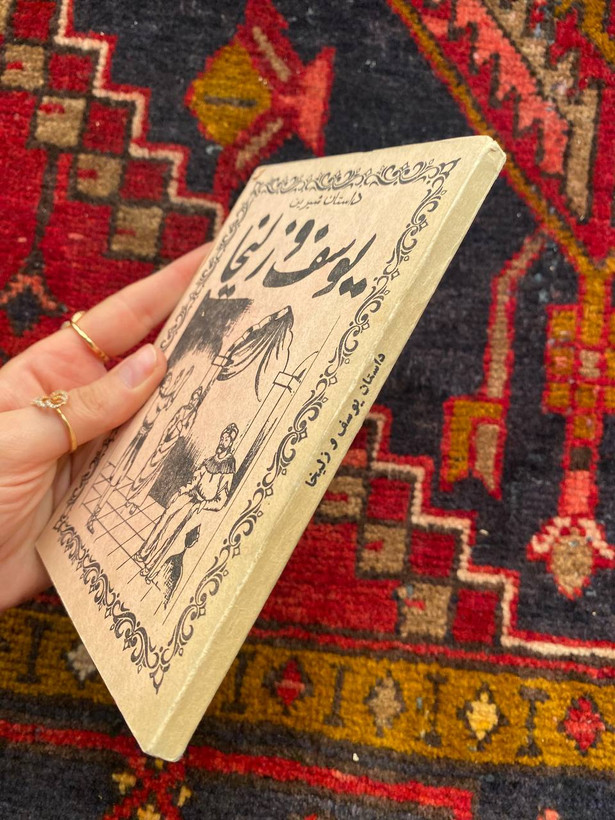 داستان شیرین
یوسف و زلیخا
داستان یوسف و زلیخا